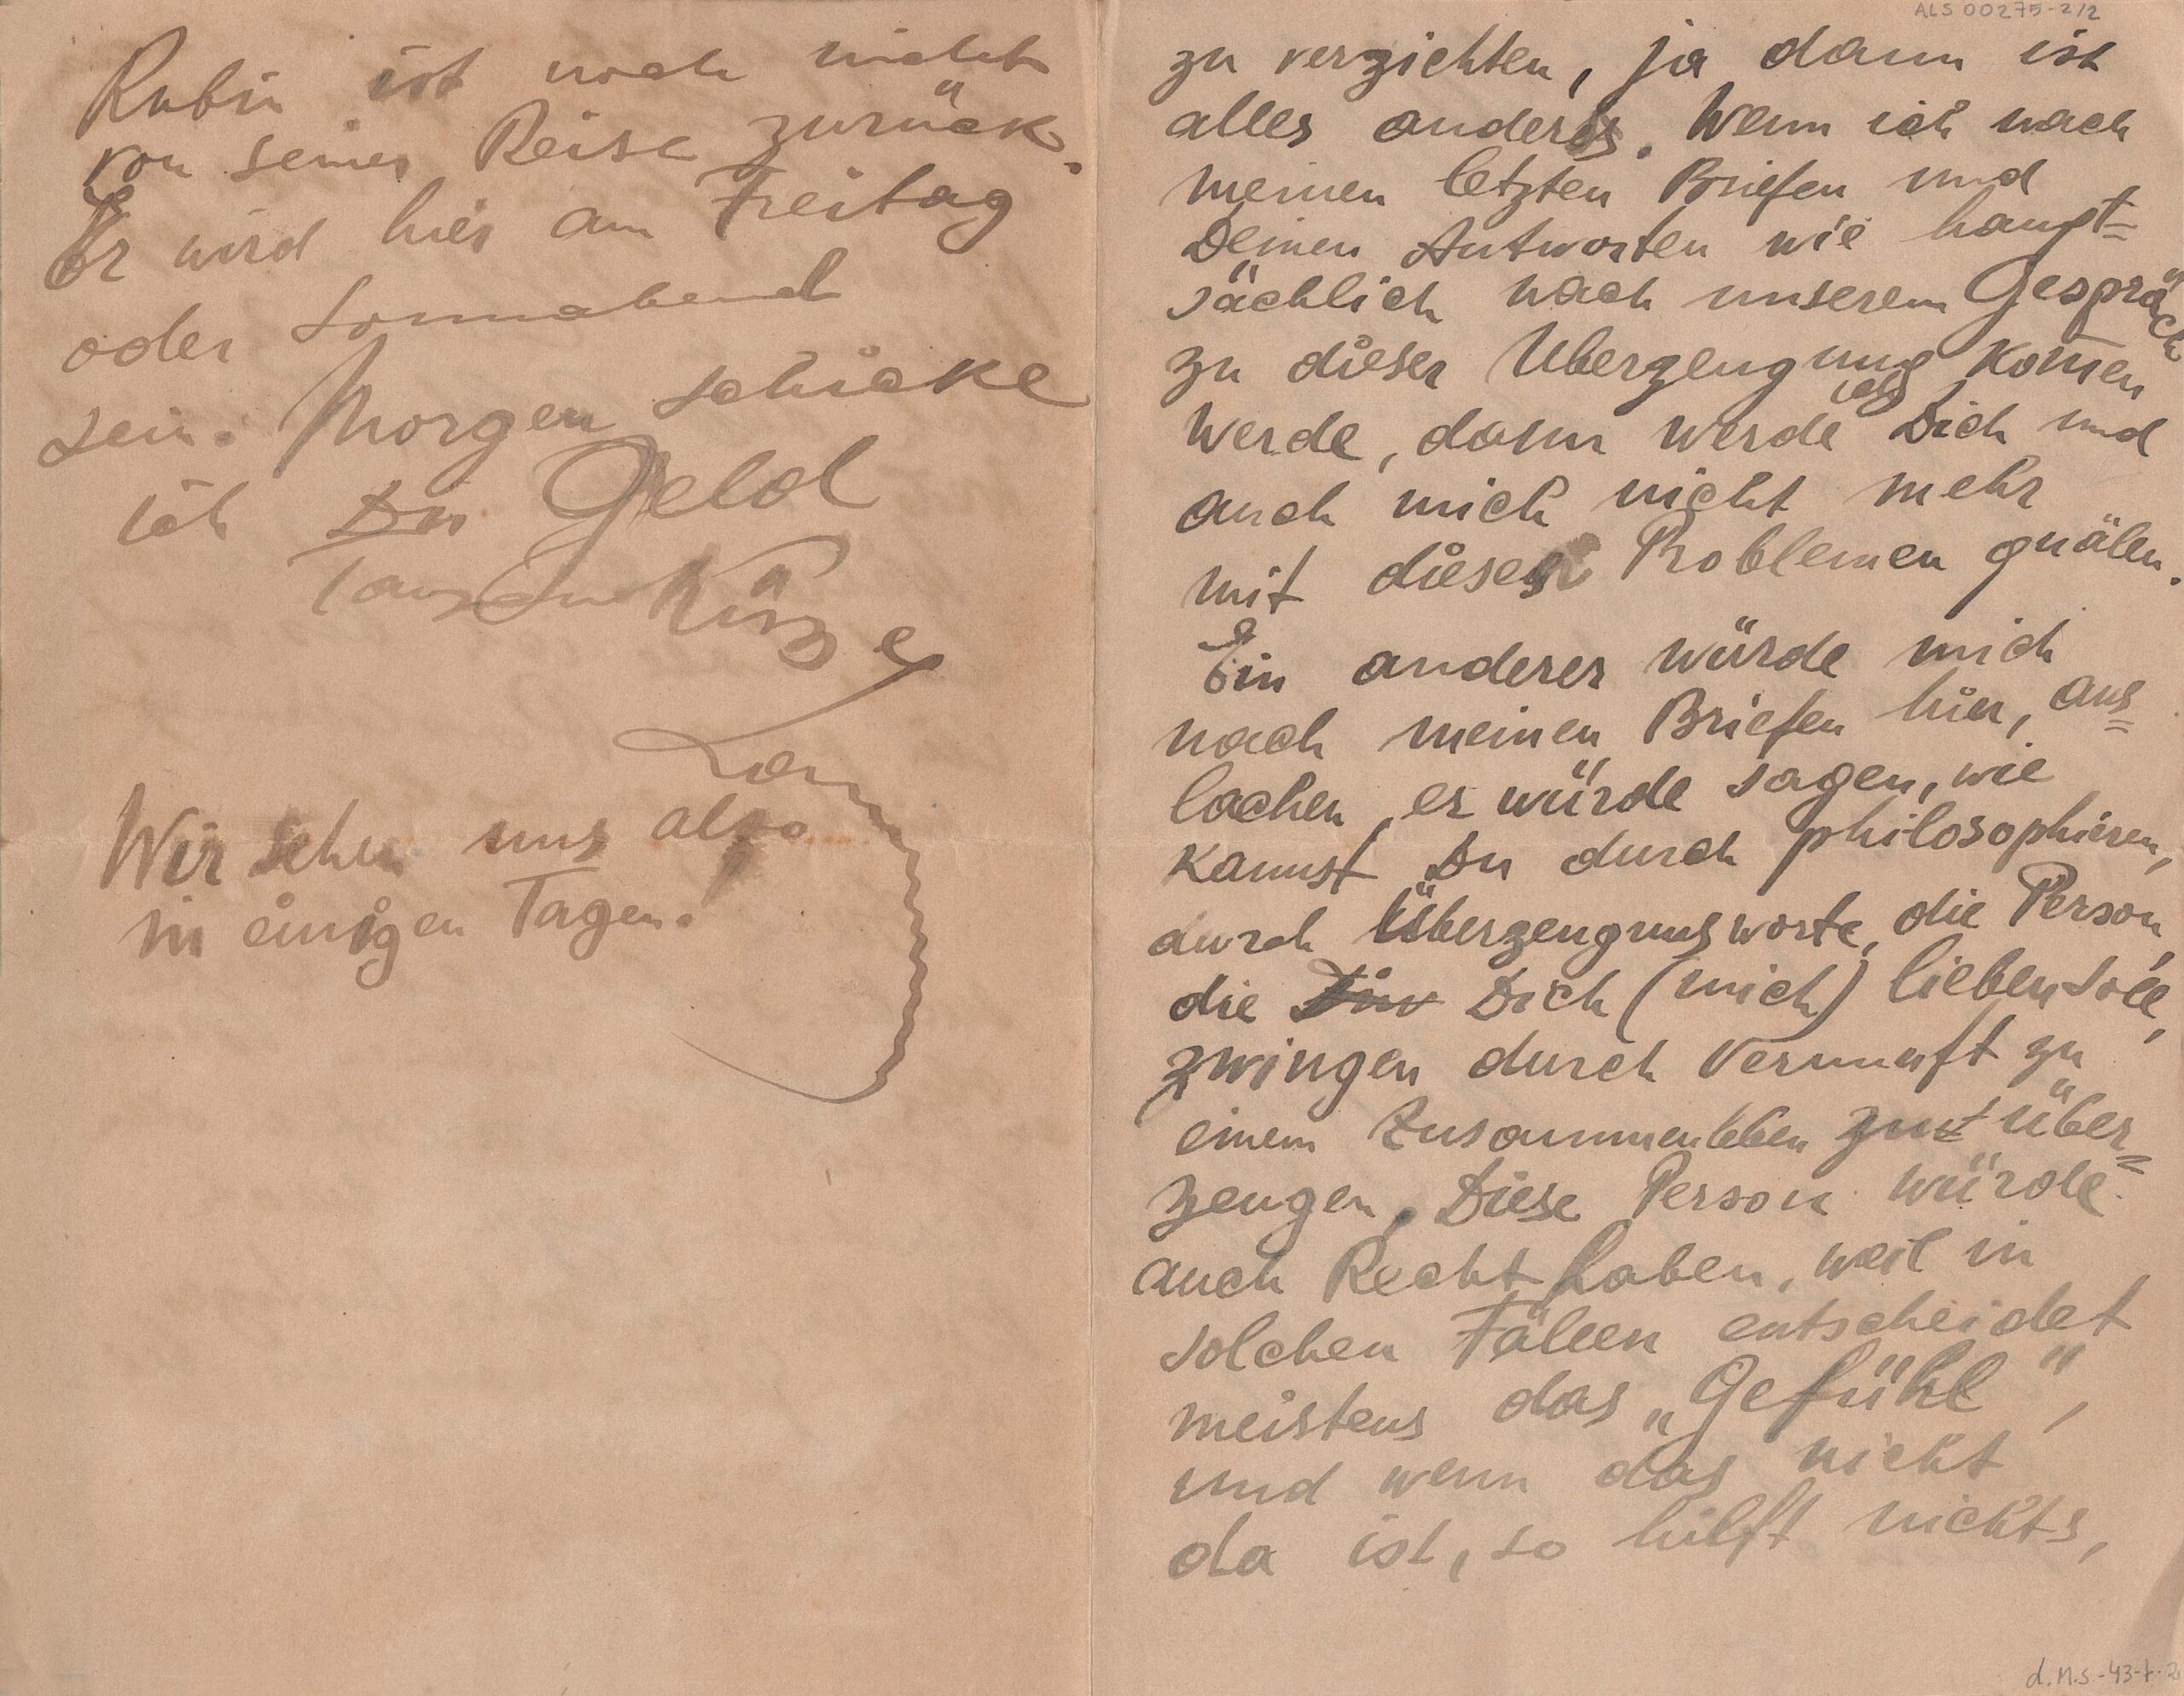 Rubin ist noch nicht
von seiner Reise zurück.
Er wird hier am Freitag
oder Sonnabend
sein. Morgen schicke
ich Dir Geld
Tausend Küsse
Wir sehen uns also
in einigen Tagen!
ALS 00275-2/2
zu verzichten, ja dann ist
alles anders. Wenn ich nach
meinen letzten Briefen und
Deinen Antworten wie haupt=
sächlich nach unserem Gespräch
zu dieser Überzeugung komen
werde, dann werde ich Dich und
auch mich nicht mehr
mit diesen Problemen quälen.
Ein anderer würde mich
nach meinen Briefen hier, aus=
lachen, er würde sagen, wie
kannst Du durch philosophieren,
durch Überzeugunsworte, die Person,
die Dich (mich) lieben soll,
zwingen durch Vernunft zu
einem Zusammenleben zu über=
zeugen. Diese Person würde
auch Recht haben, weil in
solchen Fällen entscheidet
meistens das „Gefühl",
und wenn das nicht
da ist, so hilft nichts,
d.M.S-43-t-2